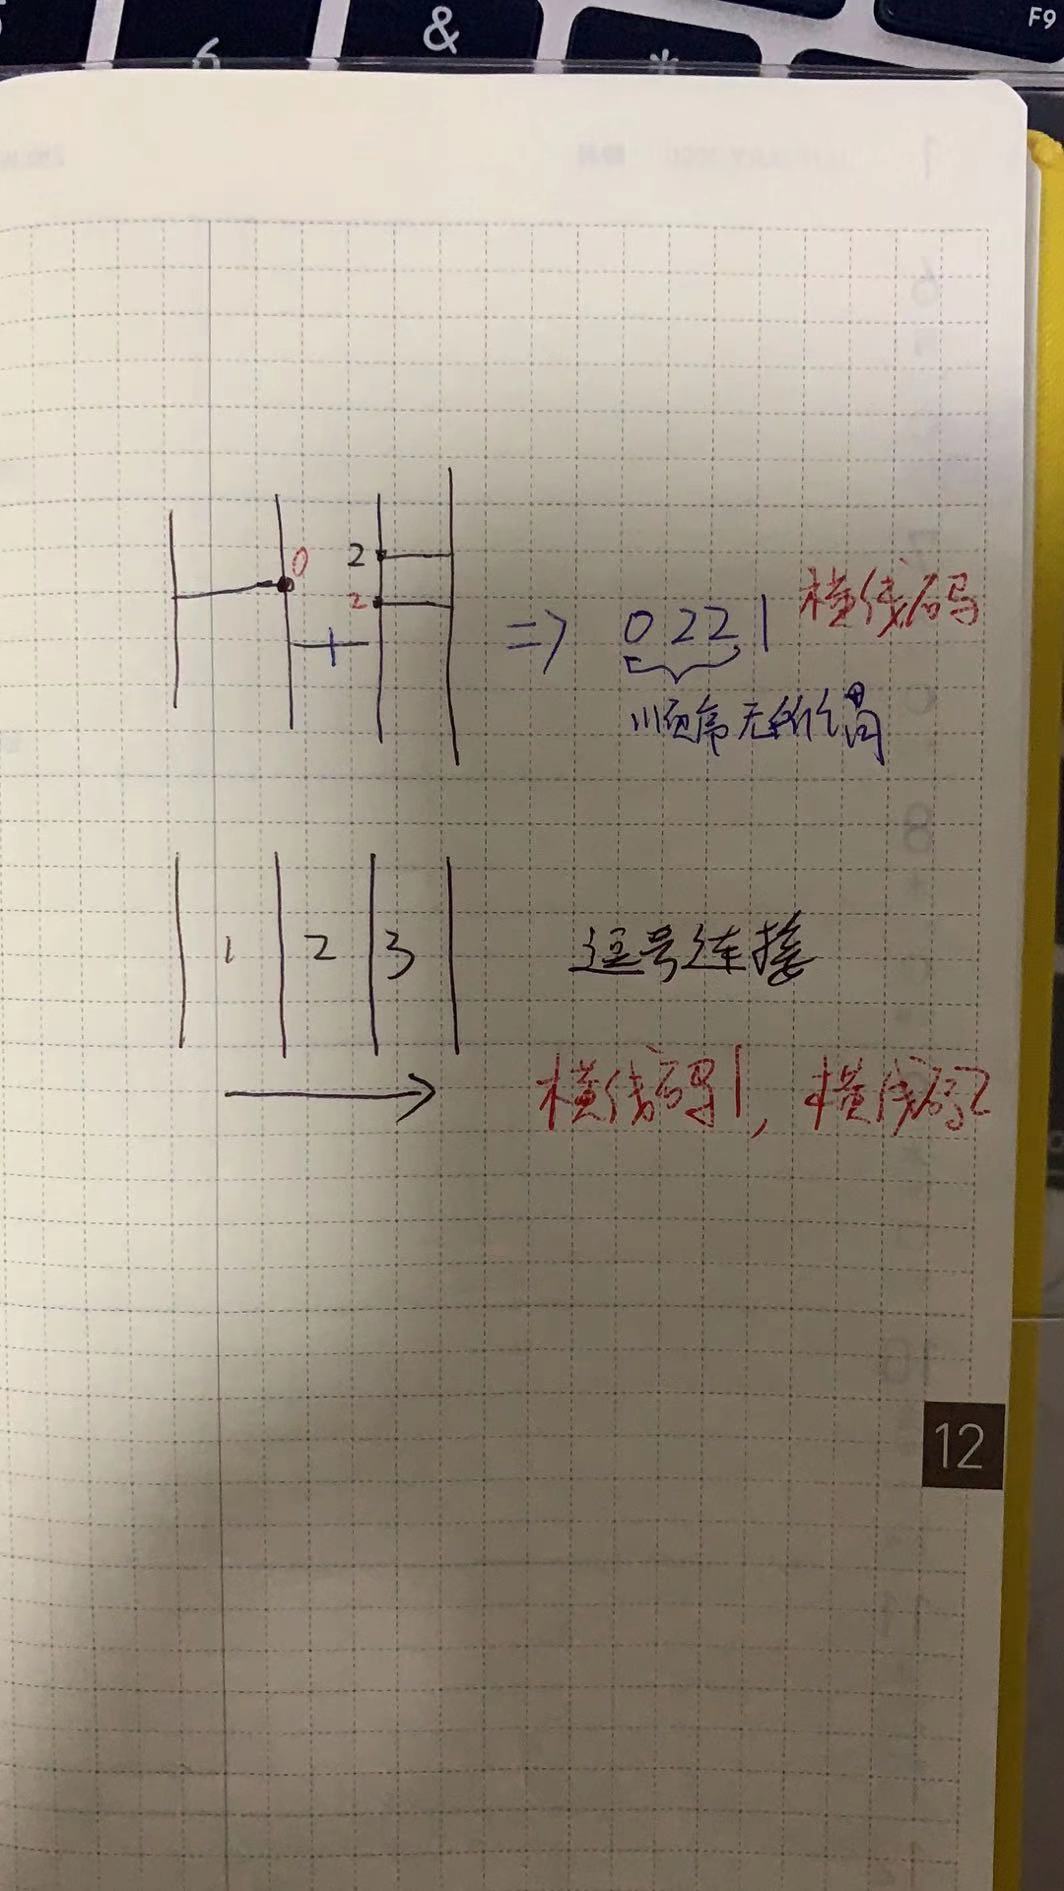 6 & * F9
0 2
2
1 ⇒ 0221 横线码
顺序无所谓
1 2 3 逗号连接
→ 横线码1, 横线码2
12